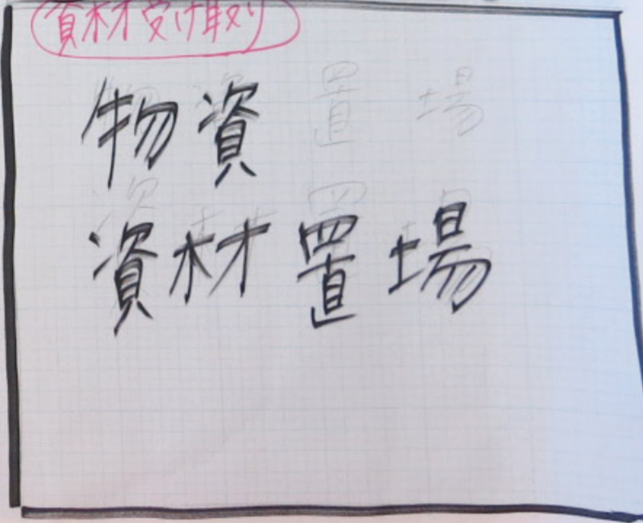 資材受け取り
物資
資材置場